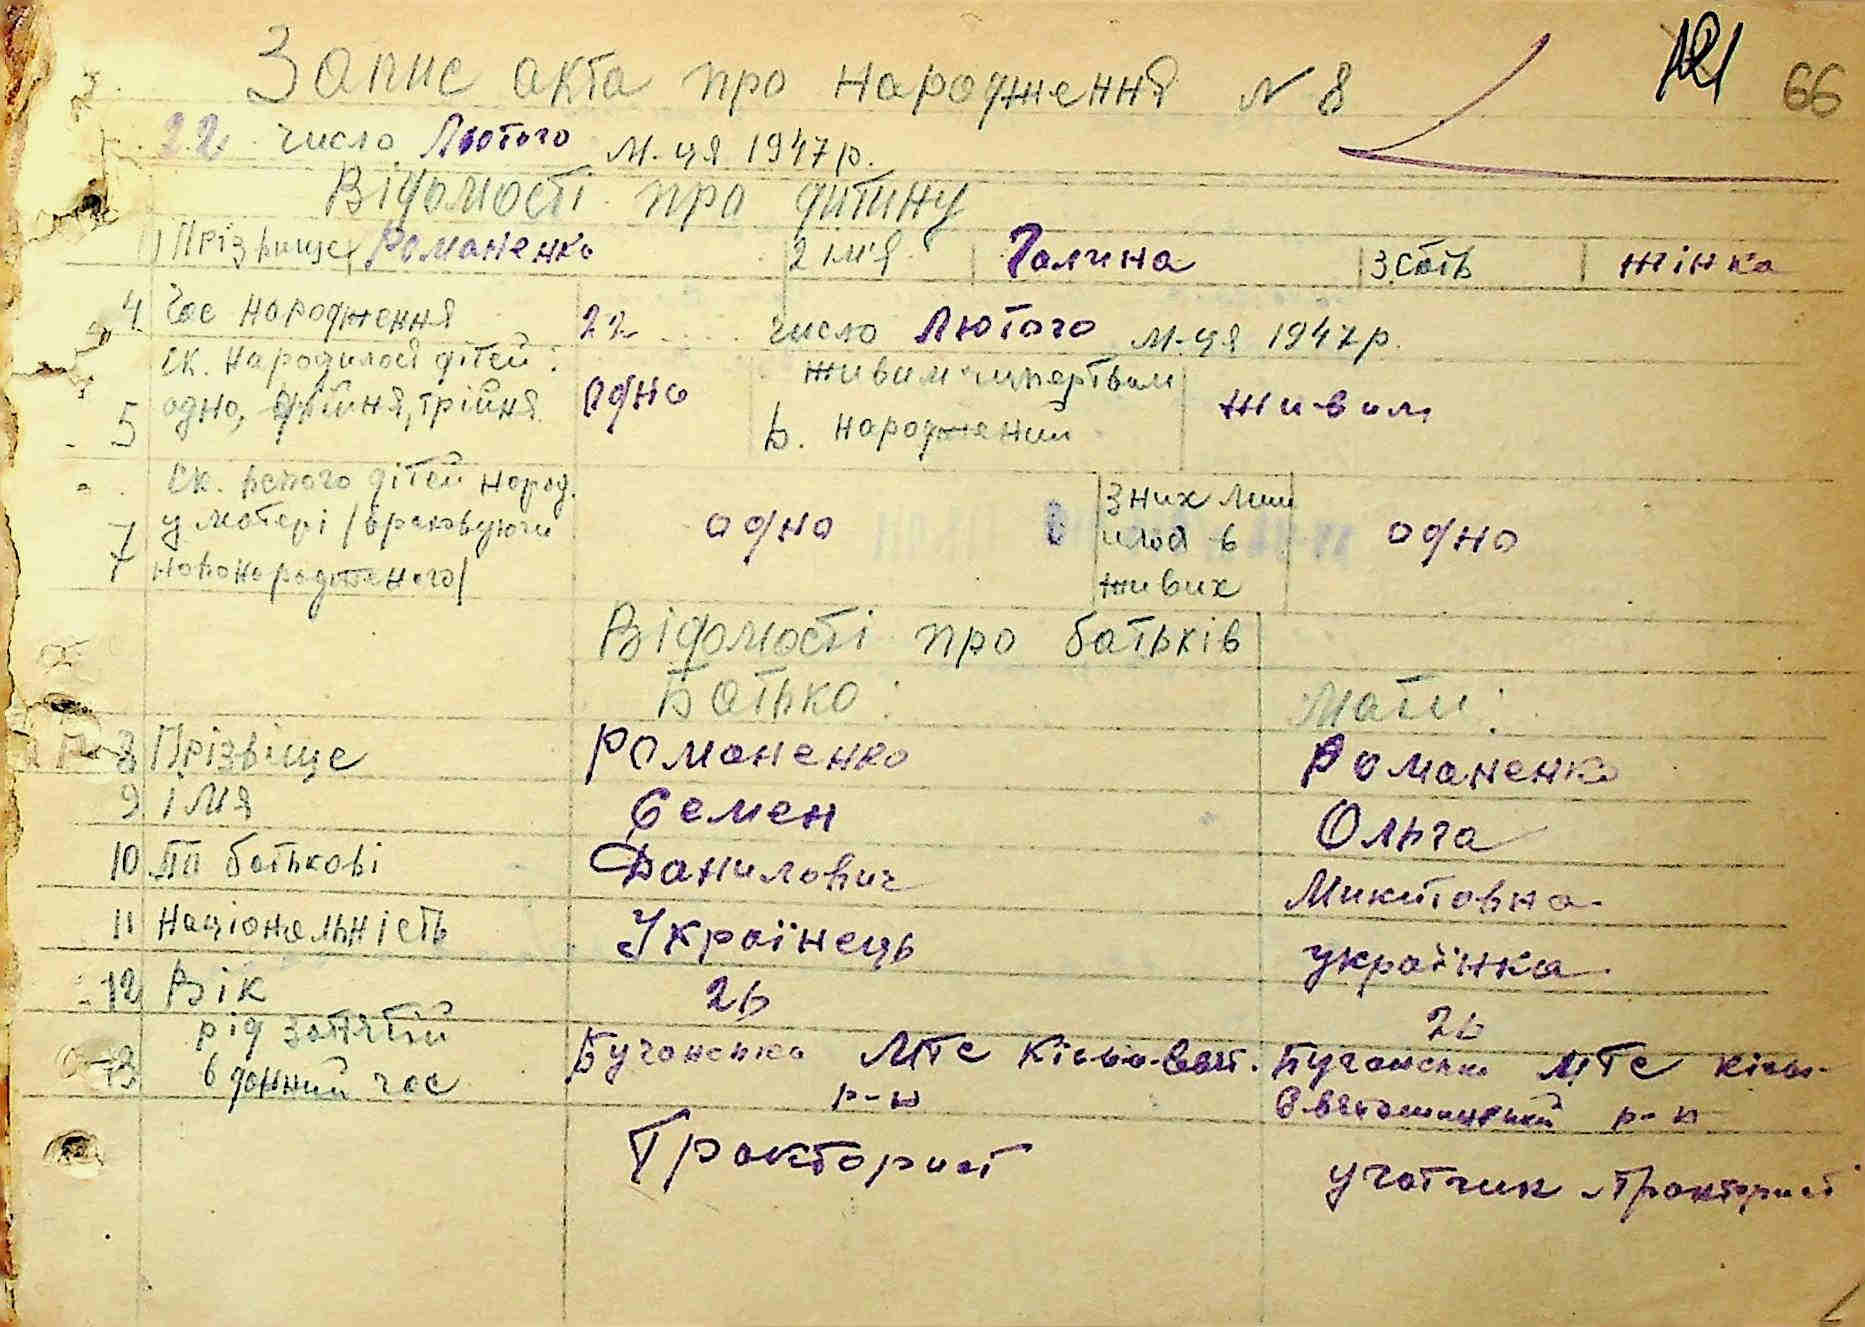 121 66
Запис акта про народження N 8
22 число Лютого м-ця 1947р.
Відомості про дитину
1) Прізвище Романенко 2 ім'я Галина 3 стать жінка
4 Час народження 22 число Лютого м-ця 1947р.
5 Ск. народилося дітей: одно, двійня, трійня одно 6. живим чи мертвим народжений живим
7 Ск. всього дітей народ. у матері /враховуючи новонародженого/ одно 8 З них лишилося в живих одно
Відомості про батьків
Батько: Мати:
8 Прізвіще Романенко Романенко
9 імя Семен Ольга
10 по батькові Данилович Микитовна
11 національність Українець українка
12 Вік 26 26
13 рід заняття в данний час Бучанська МТС Києво-Свят. р-н Бучанська МТС Києво-Святошинський р-н
Тракторист учотчик тракторист